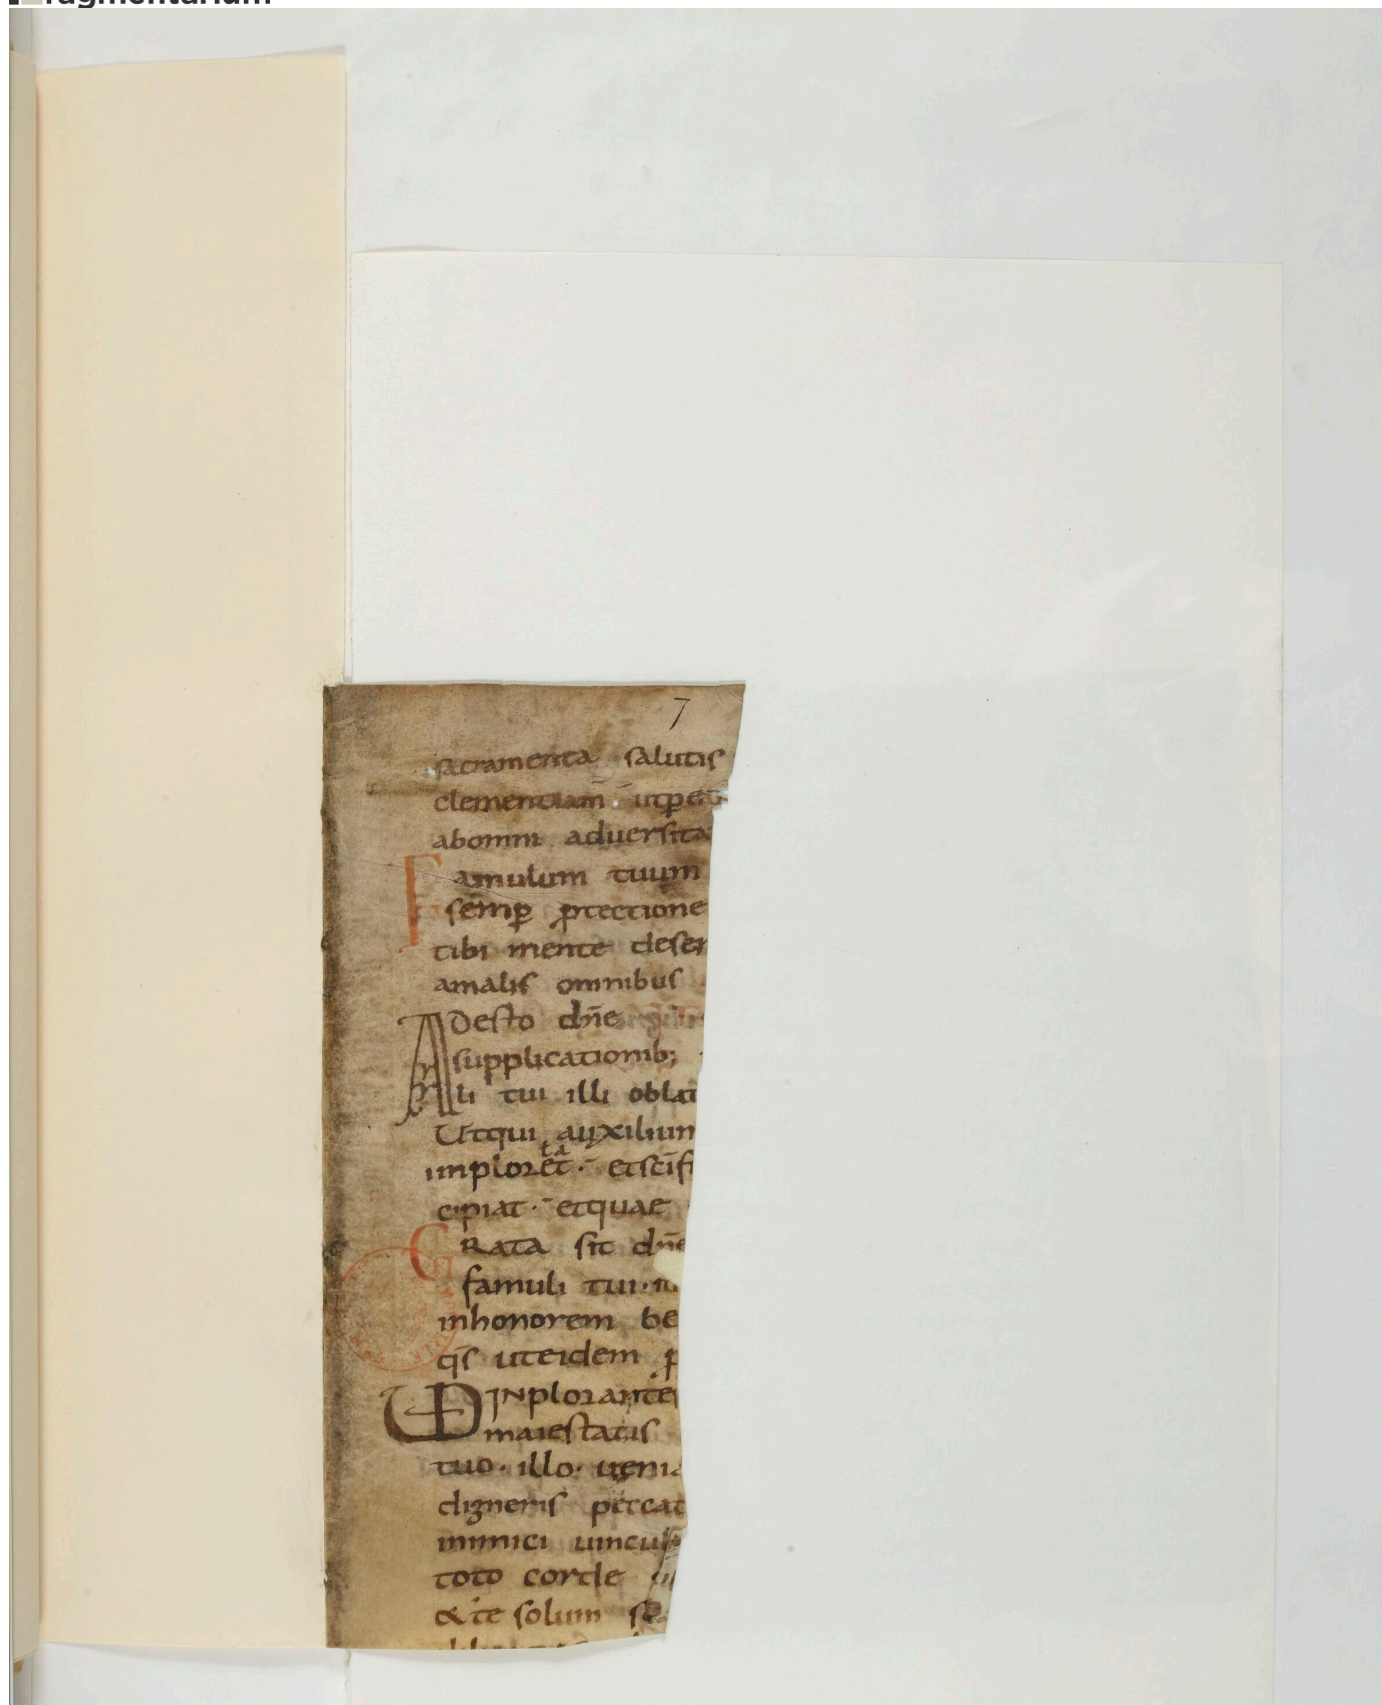 fragmentarium
7
sacramenta salutis
clementiam̄ . utp̲etu
abomni aduersita
Famulum tuum
semp̲ ꝓtectione
tibi mente deser
amalis omnibus
Adesto dn̄e
supplicationib;
li tui illi oblat
Utqui auxilium
ta
imploret · etsc̄ifi
cipiat · etquae
GRata sit dn̄e
famuli tui · n
inhonorem be
qs̄ uteidem ꝓ
UD INplorante
maiestatis
tuo · illo · uenia
digneris peccat
inimici uincul
toto corde
& te solum